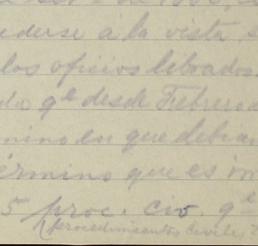 derse a la vista s
los oficios librados.
da qe desde Febrero
mino en que debian
érmino que es im
5 proc. civ. qe
(procedimientos civiles)